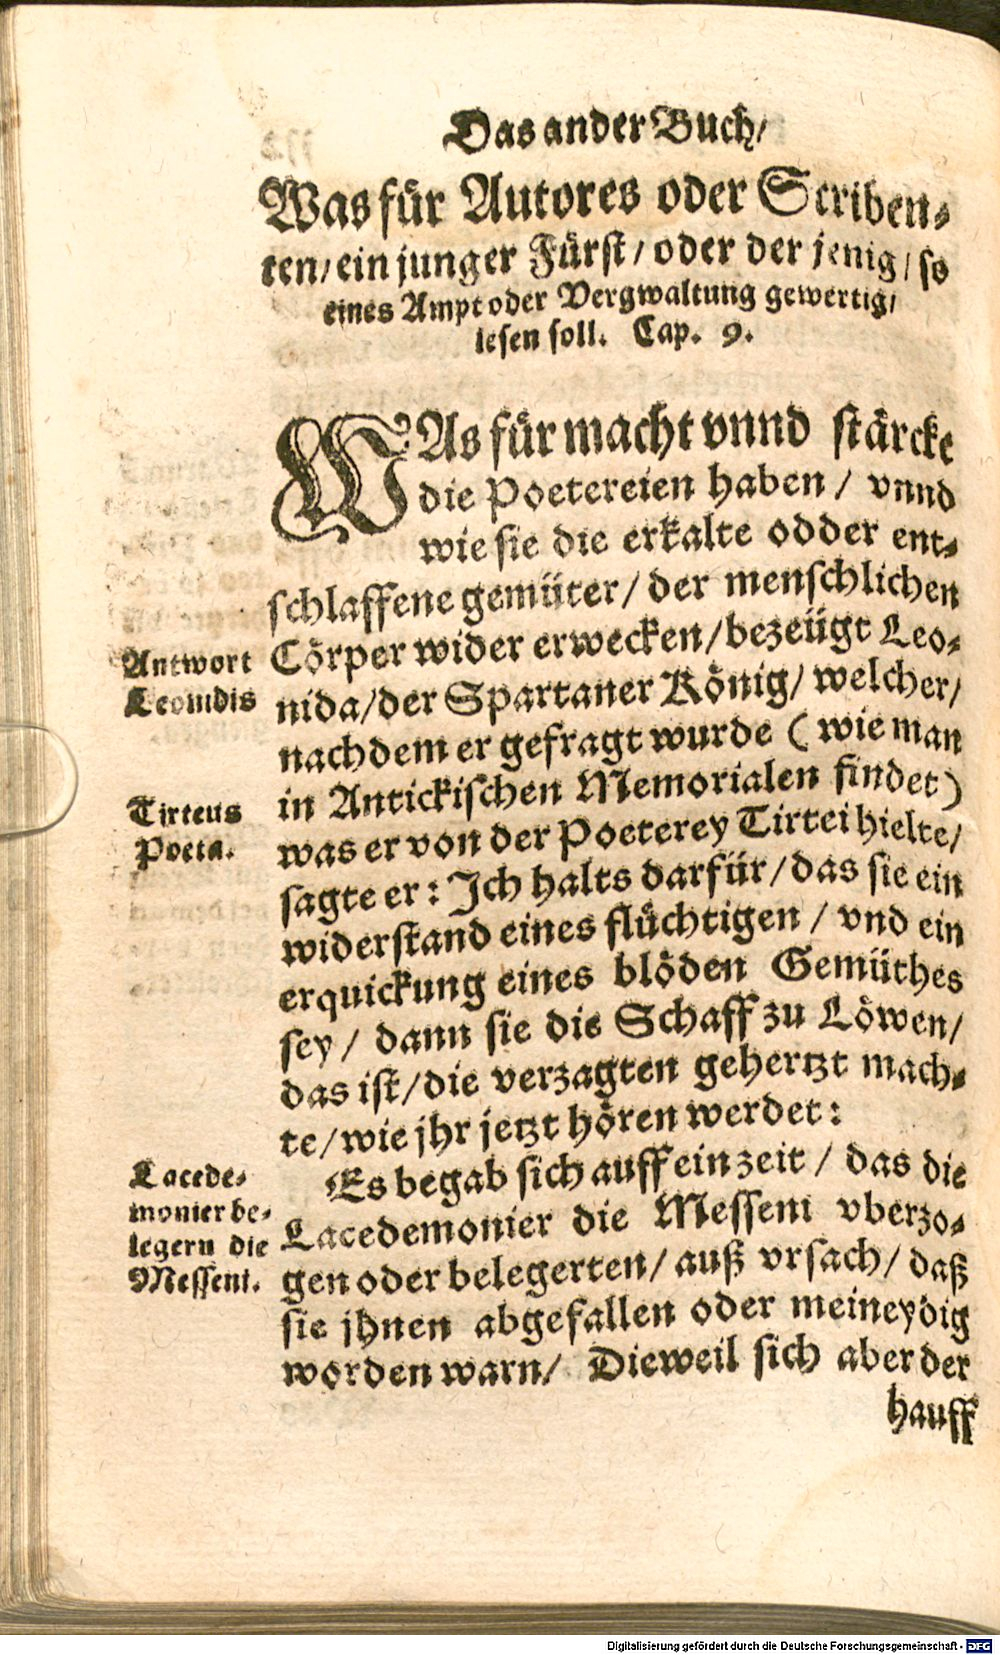 Das ander Buch/
Was für Autores oder Scriben-
ten/ ein junger Fürst/ oder der jenig/ so
eines Ampt oder Vergwaltung gewertig/
lesen soll. Cap. 9.
WAs für macht vnnd stärcke
die Poetereien haben/ vnnd
wie sie die erkalte odder ent-
schlaffene gemüter/ der menschlichen
Cörper wider erwecken/ bezeügt Leo-
nida/ der Spartaner König/ welcher/
nachdem er gefragt wurde (wie man
in Antickischen Memorialen findet)
was er von der Poeterey Tirtei hielte/
sagte er: Ich halts darfür/ das sie ein
widerstand eines flüchtigen/ vnd ein
erquickung eines blöden Gemüthes
sey/ dann sie die Schaff zu Löwen/
das ist/ die verzagten gehertzt mach-
te/ wie jhr jetzt hören werdet:
Es begab sich auff ein zeit/ das die
Lacedemonier die Messeni vberzo-
gen oder belegerten/ auß vrsach/ daß
sie jhnen abgefallen oder meineydig
worden warn/ Dieweil sich aber der
hauff
Antwort
Leonidis
Tirteus
Poeta.
Lacede-
monier be-
legern die
Messeni.
Digitalisierung gefördert durch die Deutsche Forschungsgemeinschaft - DFG